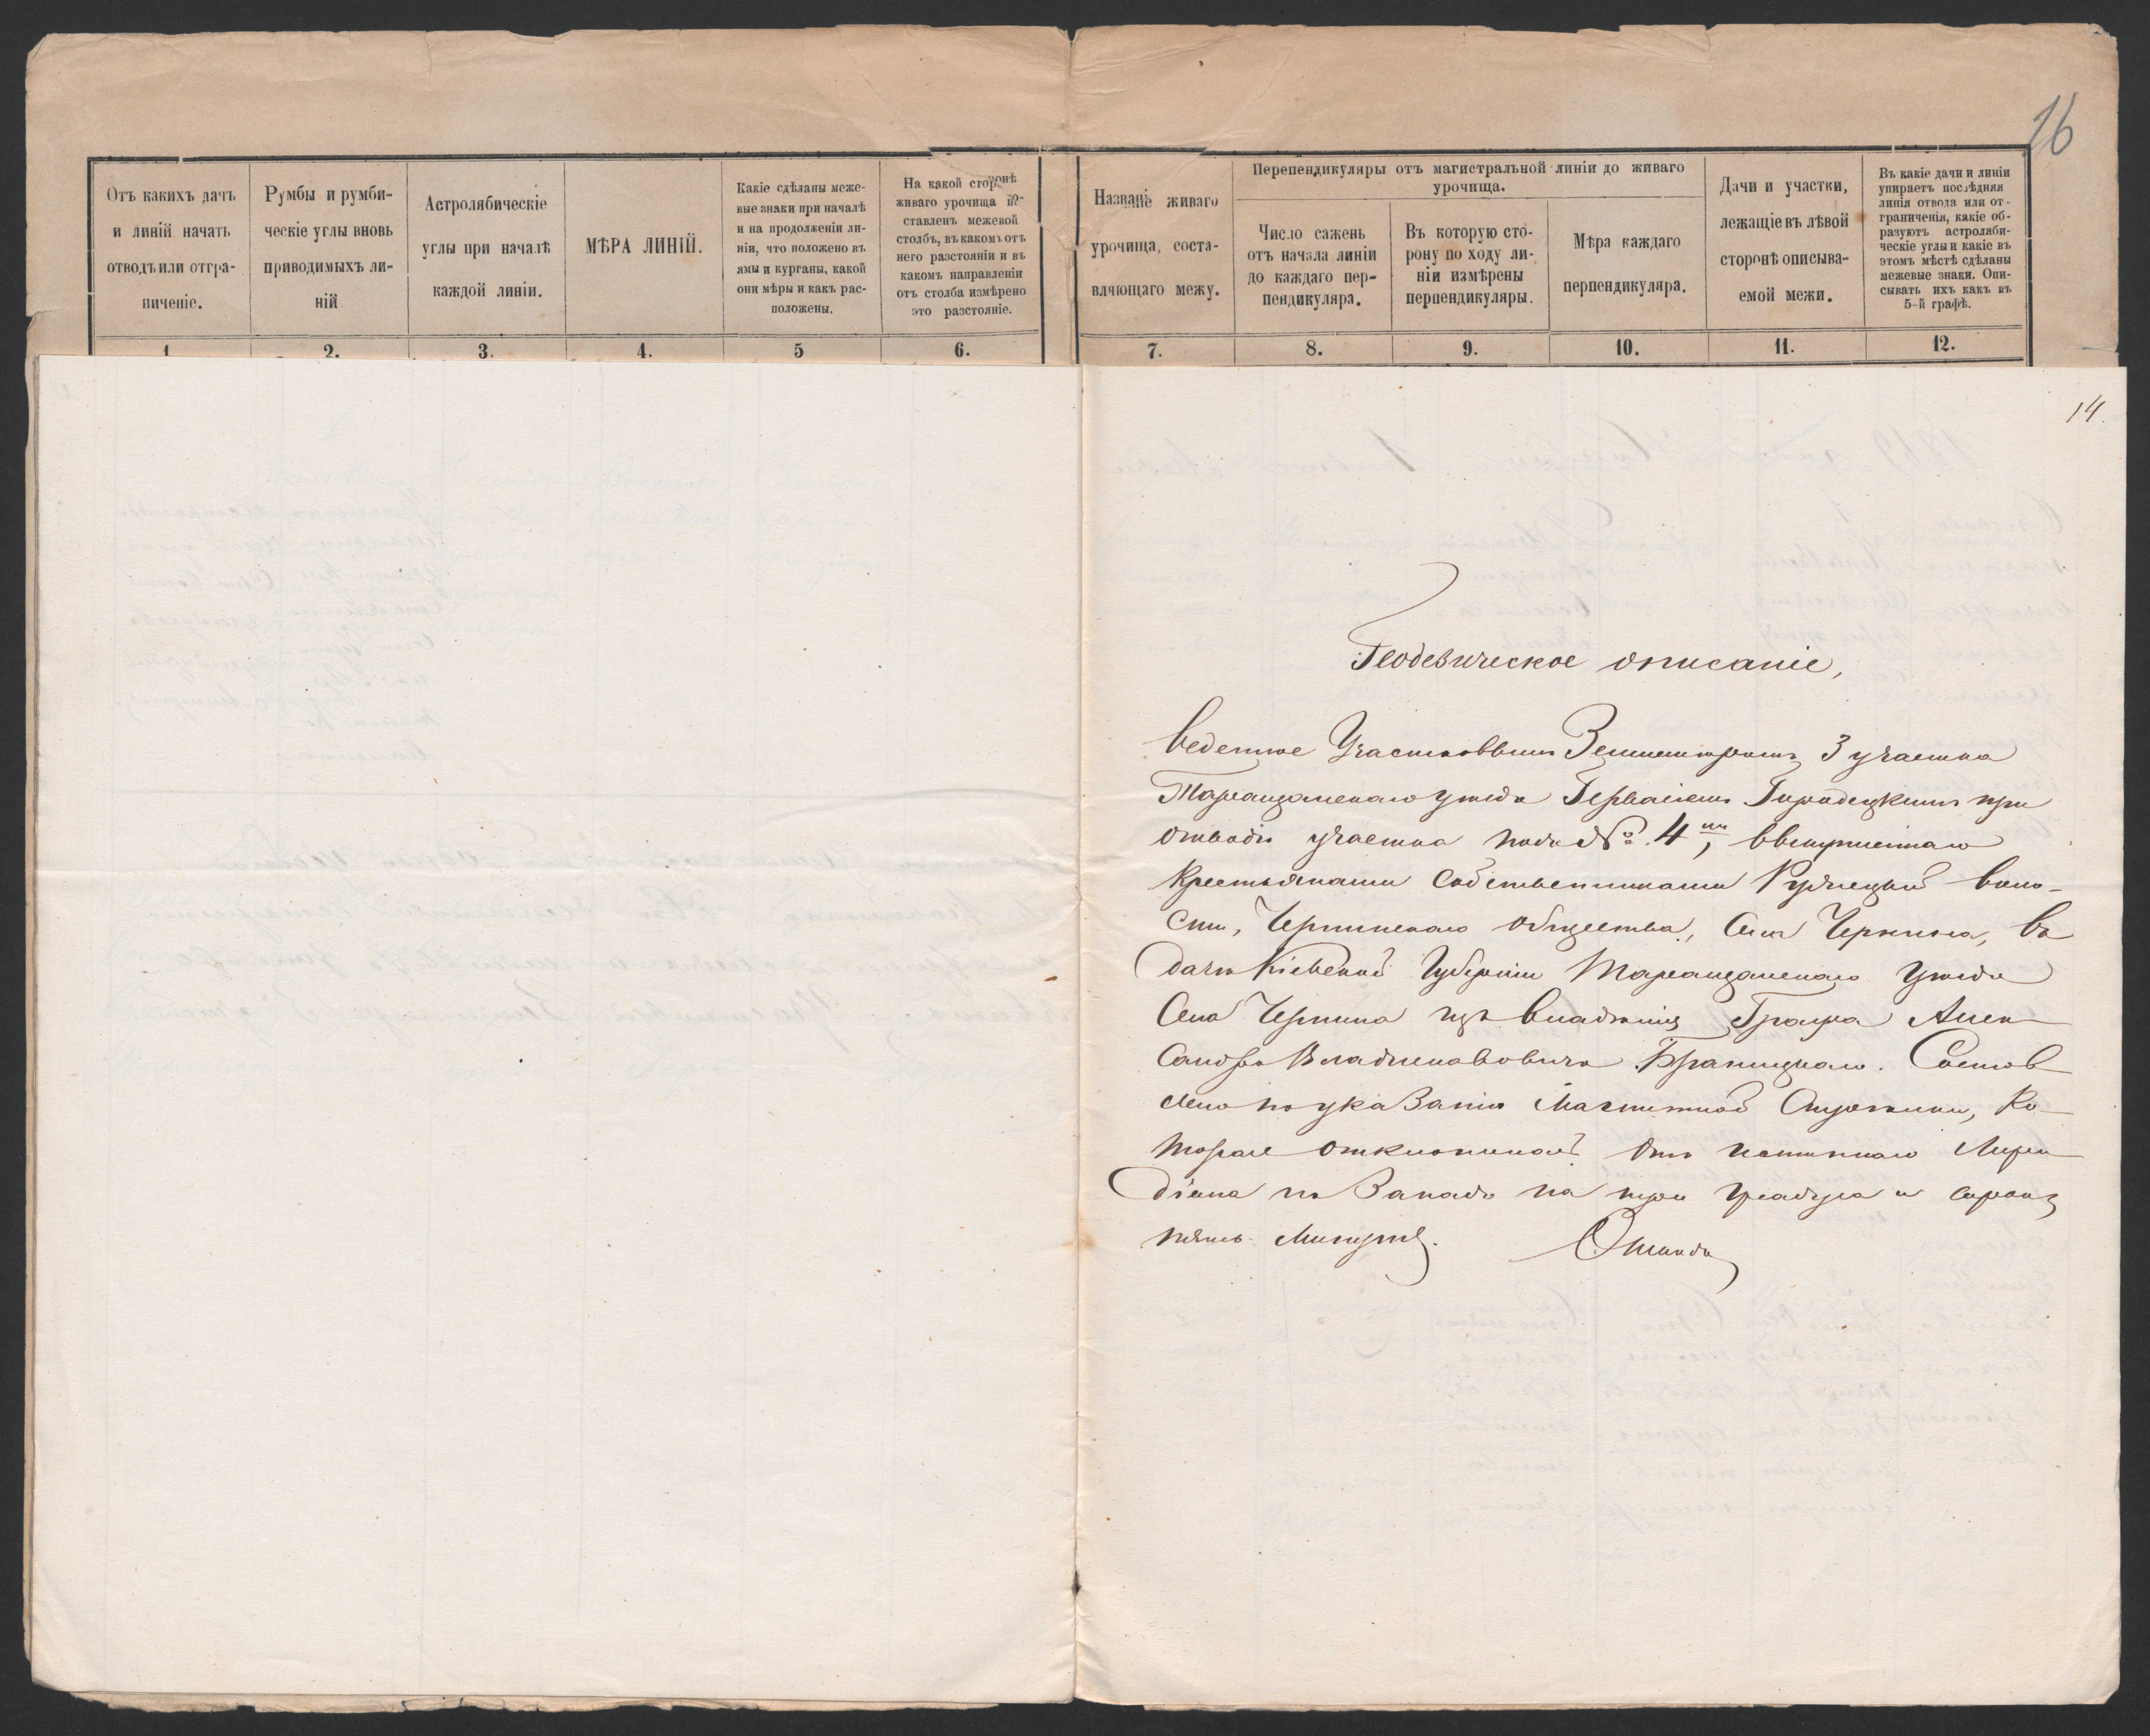 16
Отъ какихъ дачъ
и линій начать
отводъ или отгра-
ниченіе.
Румбы и румби-
ческіе углы вновь
приводимыхъ ли-
ній
Астролябическіе
углы при началѣ
каждой линіи.
МѢРА ЛИНІЙ.
Какіе сдѣланы меже-
вые знаки при началѣ
и на продолженіи ли-
ніи, что положено въ
ямы и курганы, какой
они мѣры и какъ рас-
положены.
На какой сторонѣ
живаго урочища по-
ставленъ межевой
столбъ, въ какомъ отъ
него разстояніи и въ
какомъ направленіи
отъ столба измѣрено
это разстояніе.
Названіе живаго
урочища, соста-
вляющаго межу.
Перепендикуляры отъ магистральной линіи до живаго
урочища.
Число сажень
отъ начала линіи
до каждаго пер-
пендикуляра.
Въ которую сто-
рону по ходу ли-
ніи измѣрены
перпендикуляры.
Мѣра каждаго
перпендикуляра.
Дачи и участки,
лежащіе въ лѣвой
сторонѣ описыва-
емой межи.
Въ какіе дачи и линіи
упираетъ послѣдняя
линія отвода или от-
граниченія, какіе об-
разуютъ астроляби-
ческіе углы и какіе въ
этомъ мѣстѣ сдѣланы
межевые знаки. Опи-
сывать ихъ какъ въ
5-й графѣ.
1 2. 3. 4. 5 6. 7. 8. 9. 10. 11. 12.
14.
Геодезическое описаніе,
веденное Участковымъ Землемѣромъ 3 участка
Таращанскаго уѣзда Гервасіемъ Городецкимъ при
отводѣ участка подъ № 4мъ,
Крестьянами Собственниками воло-
сти, Чернинскаго общества, Села Чернина, въ
дачѣ Кіевской Губерніи Таращанскаго Уѣзда
Села Чернина изъ владѣнія Графа Алек-
сандра Владиславовича Браницкаго. Состав
лено по указанію Магнитной Стрѣлки, Ко-
торая отклонилась отъ истиннаго Мери
діана къ Западу на три градуса и сорокъ
пять минутъ. Отводъ